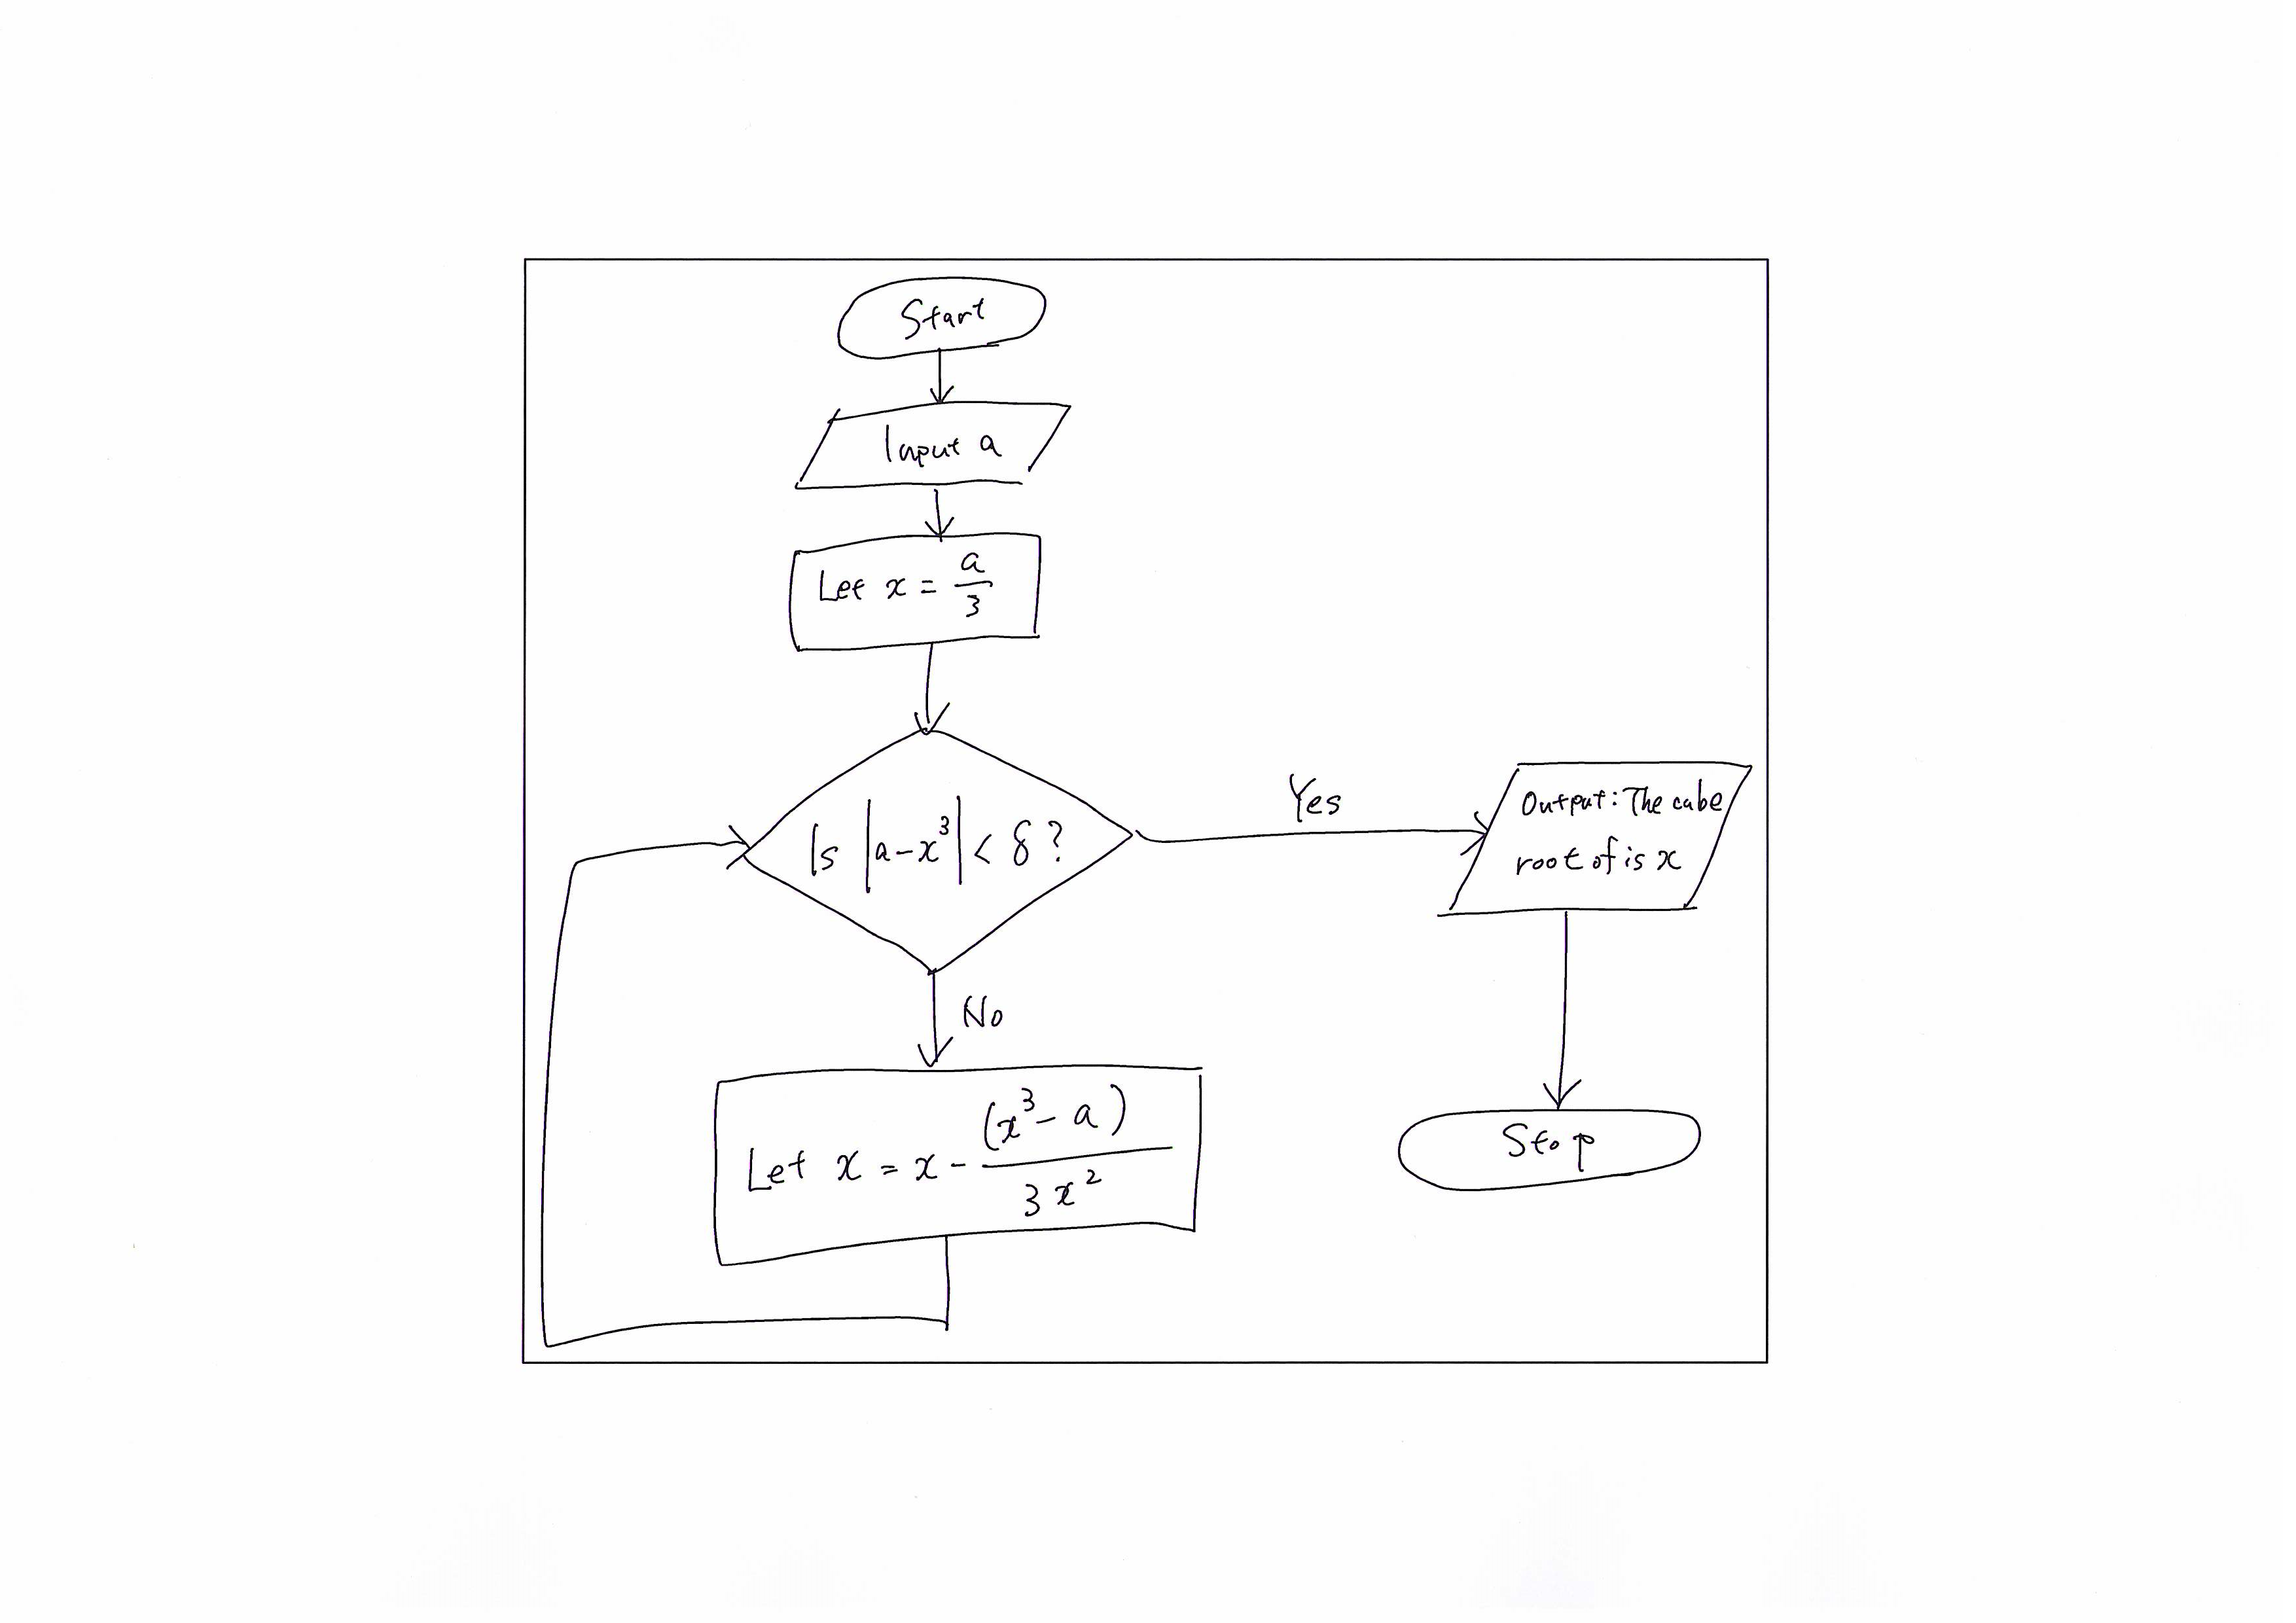 Start
Input a
Let x = a/3
Is |a-x³| < δ?
Yes
Output: The cube
root of is x
No
Let x = x - (x³ - a)/3x²
Stop